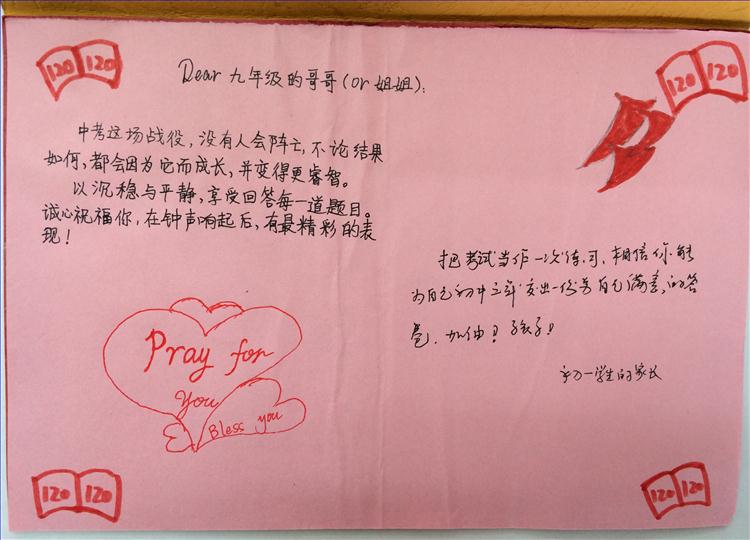 120 120
120 120
Dear 九年级的哥哥(or 姐姐):
中考这场战役,没有人会阵亡,不论结果
如何,都会因为它而成长,并变得更睿智。
以沉稳与平静,享受回答每一道题目。
诚心祝福你,在钟声响起后,有最精彩的表
现!
把考试当作一次练习,相信你能
为自己初中三年交出一份另自己满意的答
卷,加油!孩子!
初一学生的家长
Pray for
You
Bless you
120 120
120 120